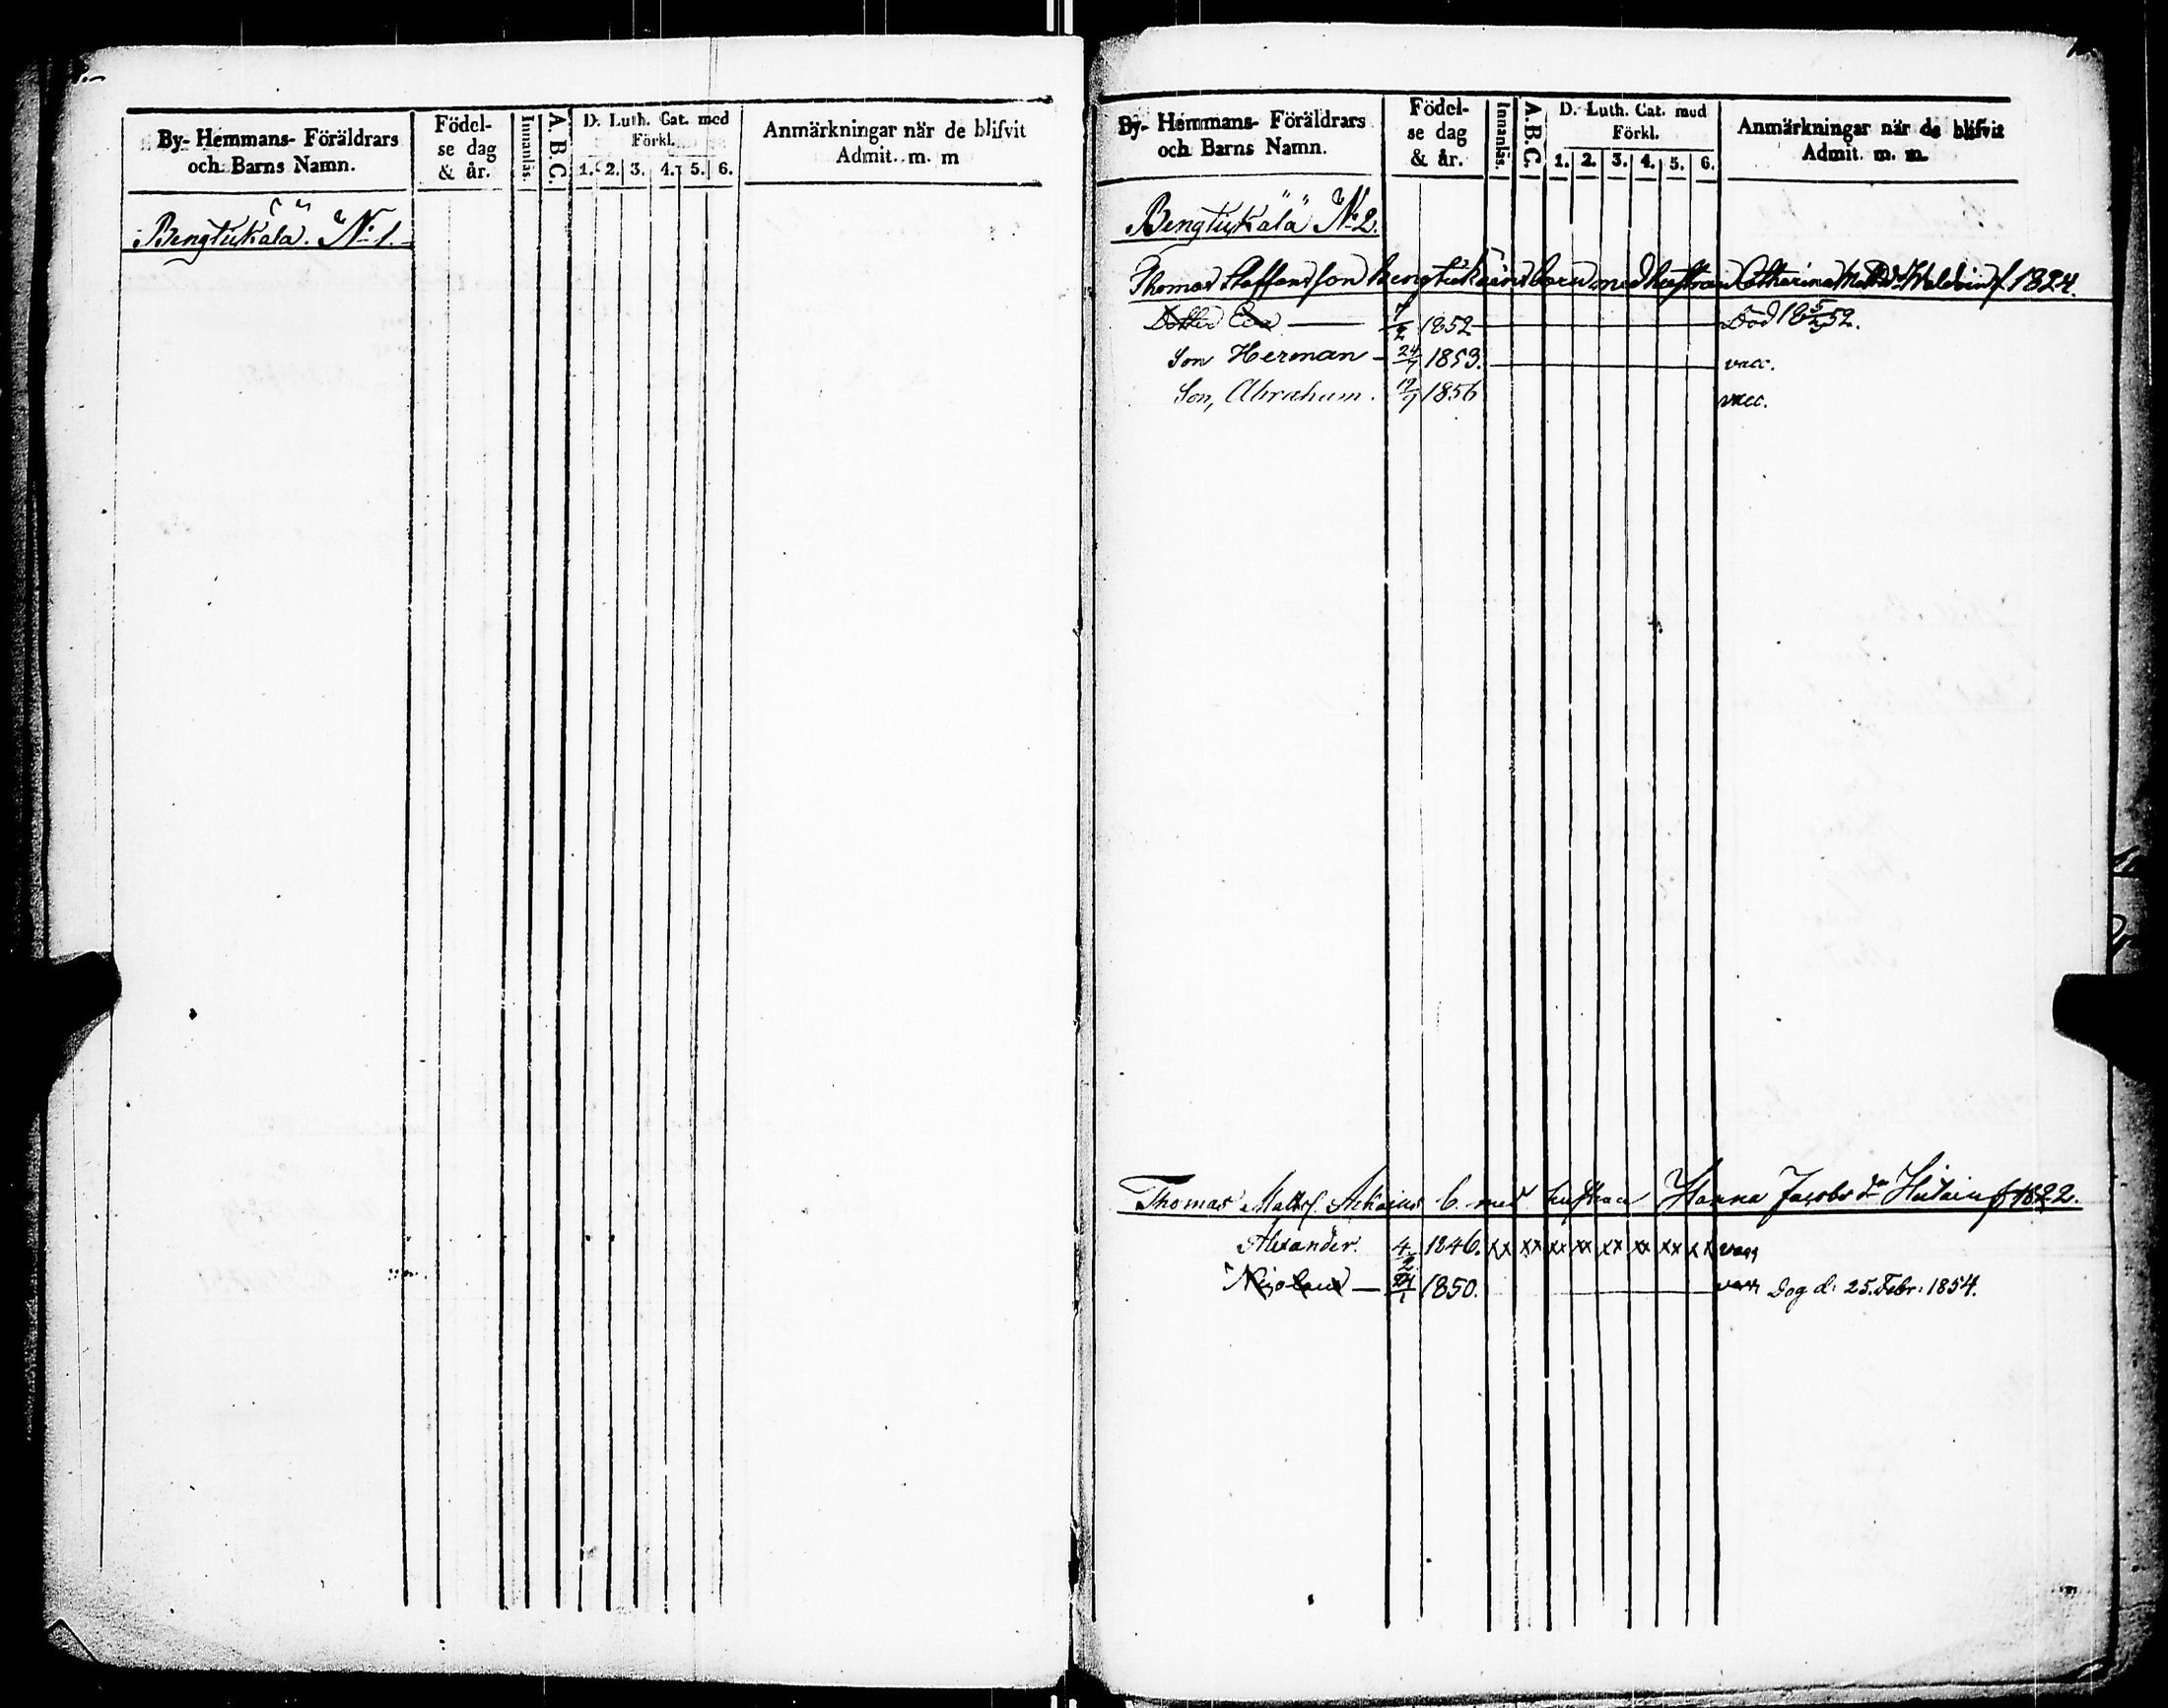 By- Hemmans- Föräldrars
och Barns Namn.
Födel-
se dag
& år.
Innanläs.
A. B. C.
D. Luth. Cat. med
Förkl.
1. 2. 3. 4. 5. 6.
Anmärkningar när de blifvit
Admit. m. m
Bengtukälä. N:o 1.
By- Hemmans- Föräldrars
och Barns Namn.
Födel-
se dag
& år.
Innanläs.
A. B. C.
D. Luth. Cat. med
Förkl.
1. 2. 3. 4. 5. 6.
Anmärkningar när de blifvit
Admit. m. m.
Bengtukälä N:o 2.
Thomas Staffansson barn med hustrun Catharina f. 1824.
Dotter Eva 7/2 1852 Död 18 5/3 52.
Son Herman 24/7 1853. vacc.
Son, Abraham. 19/7 1856 vacc.
Thomas Mattss. b. med hustrun Hanna Jacobsdr f 1822.
Alexander. 4/2 1846. xx xx xx xx xx xx xx xx vacc
24/1 1850. vacc Dog d: 25. Febr: 1854.